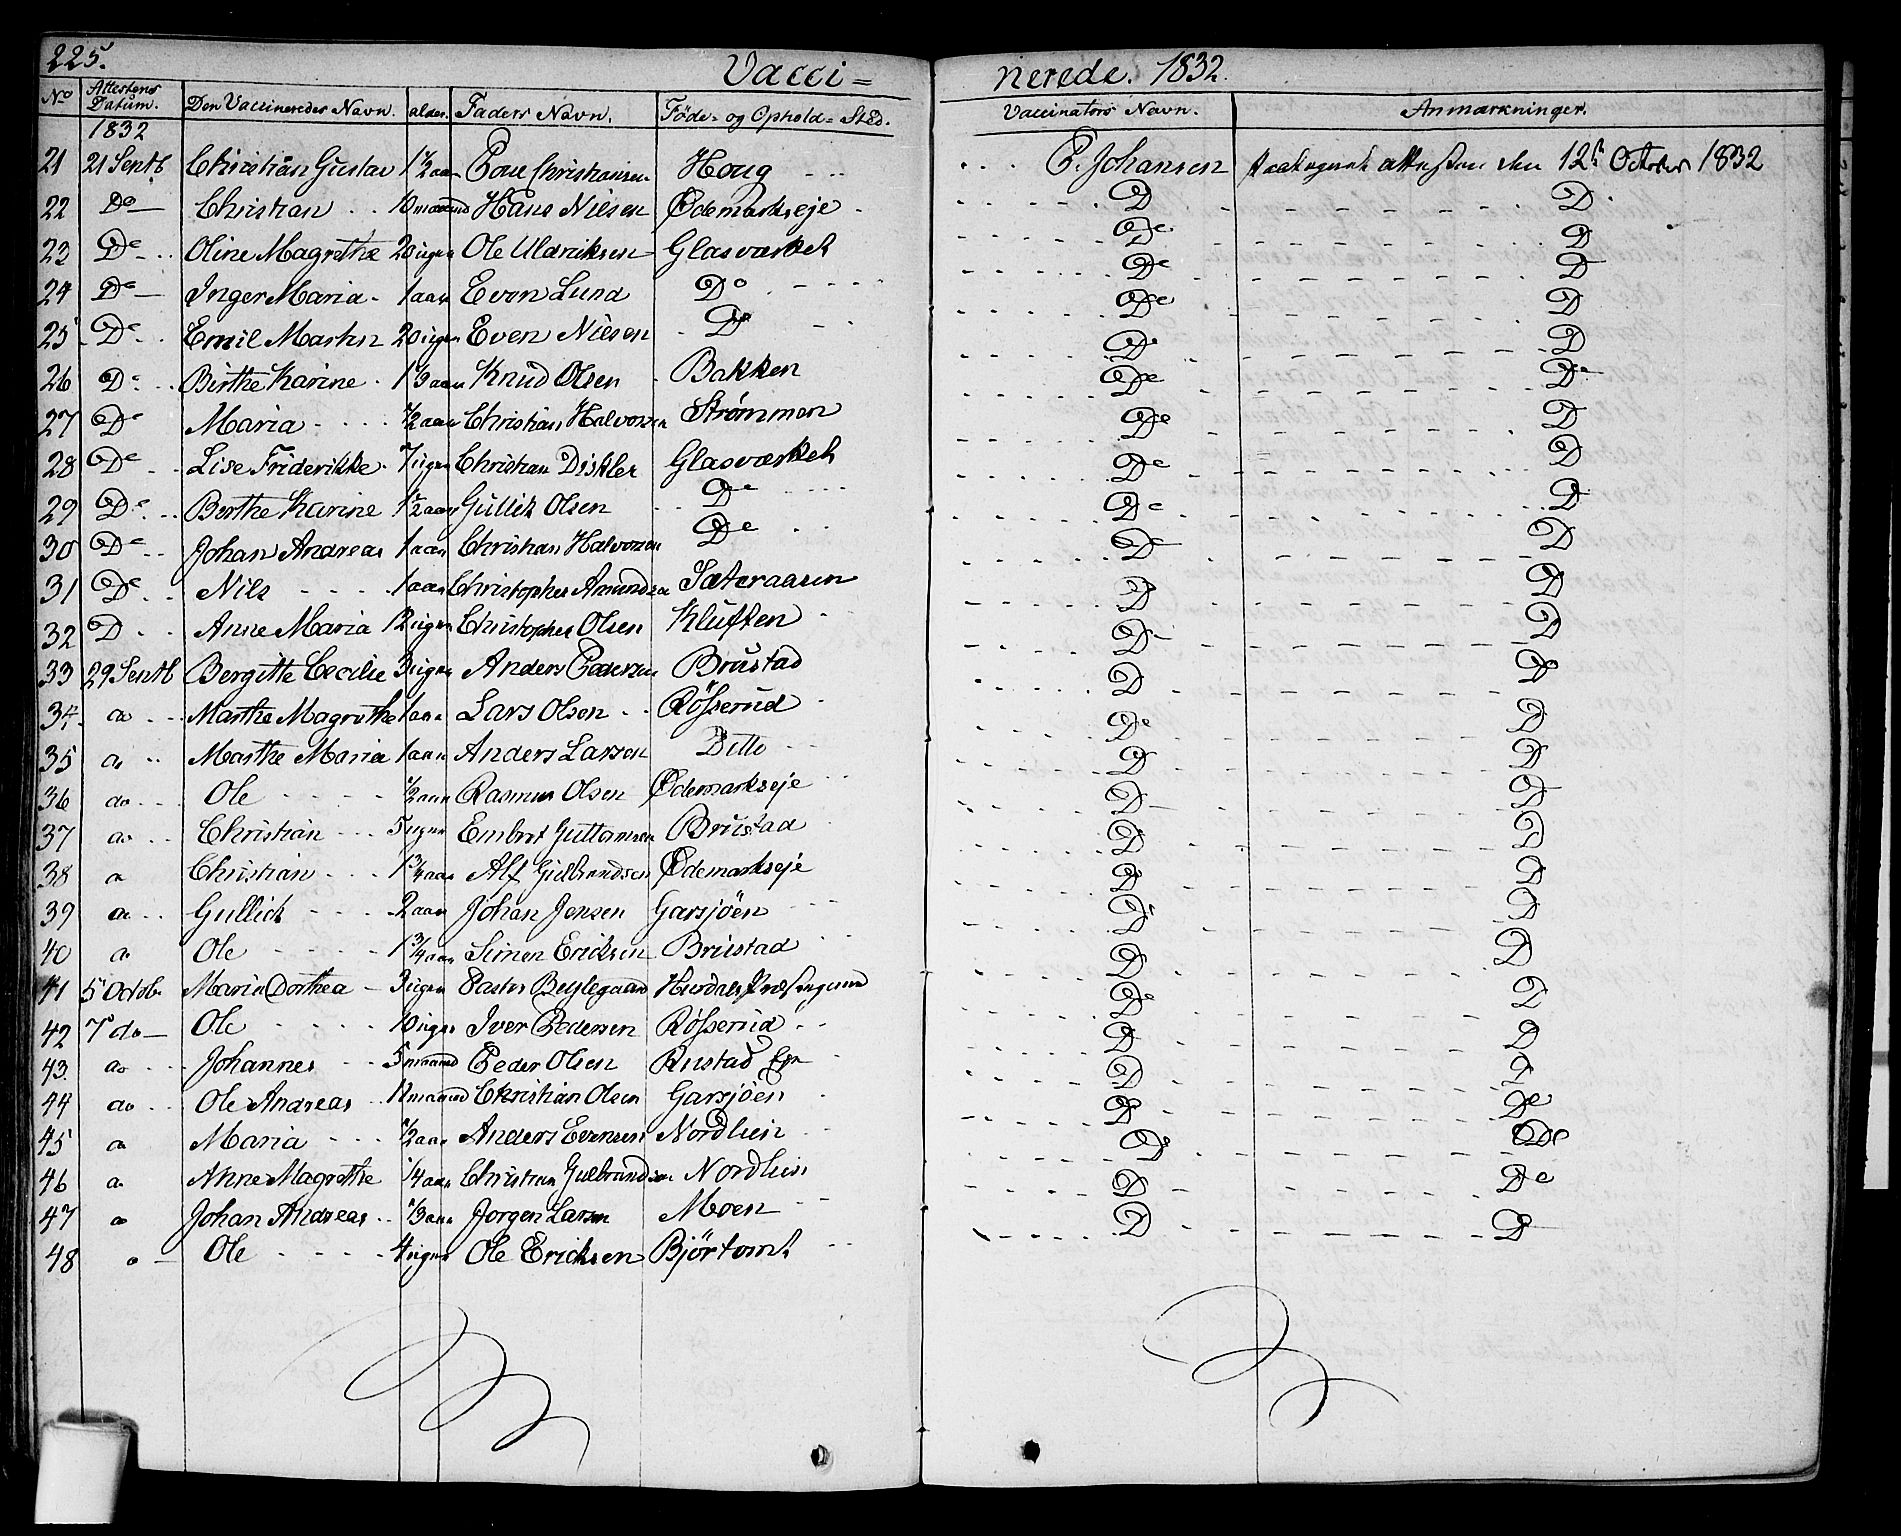 225.
Vacci= nerede. 1832.
No Attestens Datum. Den Vaccineredes Navn. alder. Faders Navn. Føde- og Ophold-Sted. Vaccinators Navn. Anmærkninger.
1832
21 21 Septb. Christian Gustav 1 1/2 aar Poul Christiansen Houg P. Johansen attesten den 12te October 1832
22 Do Christian 10 maaned Hans Nilsen Ødemarkseje Do Do
23 Do Oline Magrethe 20 ugen Ole Uldriksen Glasværket Do Do
24 Do Inger Maria 1 aar Even Lund Do Do Do
25 Do Emil Martin 20 ugen Even Nilsen Do Do Do
26 Do Birthe Karine 1 1/3 aar Knud Olsen Bakken Do Do
27 Do Maria 1/2 aar Christian Halvorsen Strømmen Do Do
28 Do Lise Friderikke 7 ugen Christian Diskler Glasværket Do Do
29 Do Berthe Karine 1 1/2 aar Gullik Olsen Do Do Do
30 Do Johan Andreas 1 aar Christian Halvorsen Do Do Do
31 Do Nils 1 aar Christopher Amundsen Sæteraasen Do Do
32 Do Anne Maria 12 ugen Christopher Olsen Kluften Do Do
33 29 Septb Bergitte Cecilie 3 ugen Anders Pedersen Brustad Do Do
34 do Marthe Magrethe 1 aar Lars Olsen Røsserud Do Do
35 do Marthe Maria 1 aar Anders Larsen Ditto Do Do
36 do Ole 1/2 aar Rasmus Olsen Ødemarkseje Do Do
37 do Christian 5 ugen Embret Guttormsen Brustad Do Do
38 do Christian 1 3/4 aar Alf Gulbrandsen Ødemarkseje Do Do
39 do Gullick 2 aar Johan Jensen Garsjöen Do Do
40 do Ole 1 3/4 aar Simen Ericksen Brustad Do Do
41 5 Octob. Maria Dorthea 3 ugen Pastor Beylegaard Hurdals Do Do
42 7de do Ole 10 ugen Iver Pedersen Røsserud Do Do
43 do Johannes 5 maaned Peder Olsen Rustad Do Do
44 do Ole Andreas 11 maaned Christian Olsen Garsjöen Do Do
45 do Maria 1/2 aar Anders Evensen Nordlien Do Do
46 do Anne Magrethe 1/4 aar Christian Gulbrandsen Nordlien Do Do
47 do Johan Andreas 1/3 aar Jørgen Larsen Moen Do Do
48 do Ole 4 ugen Ole Ericksen Bjørtomt Do Do